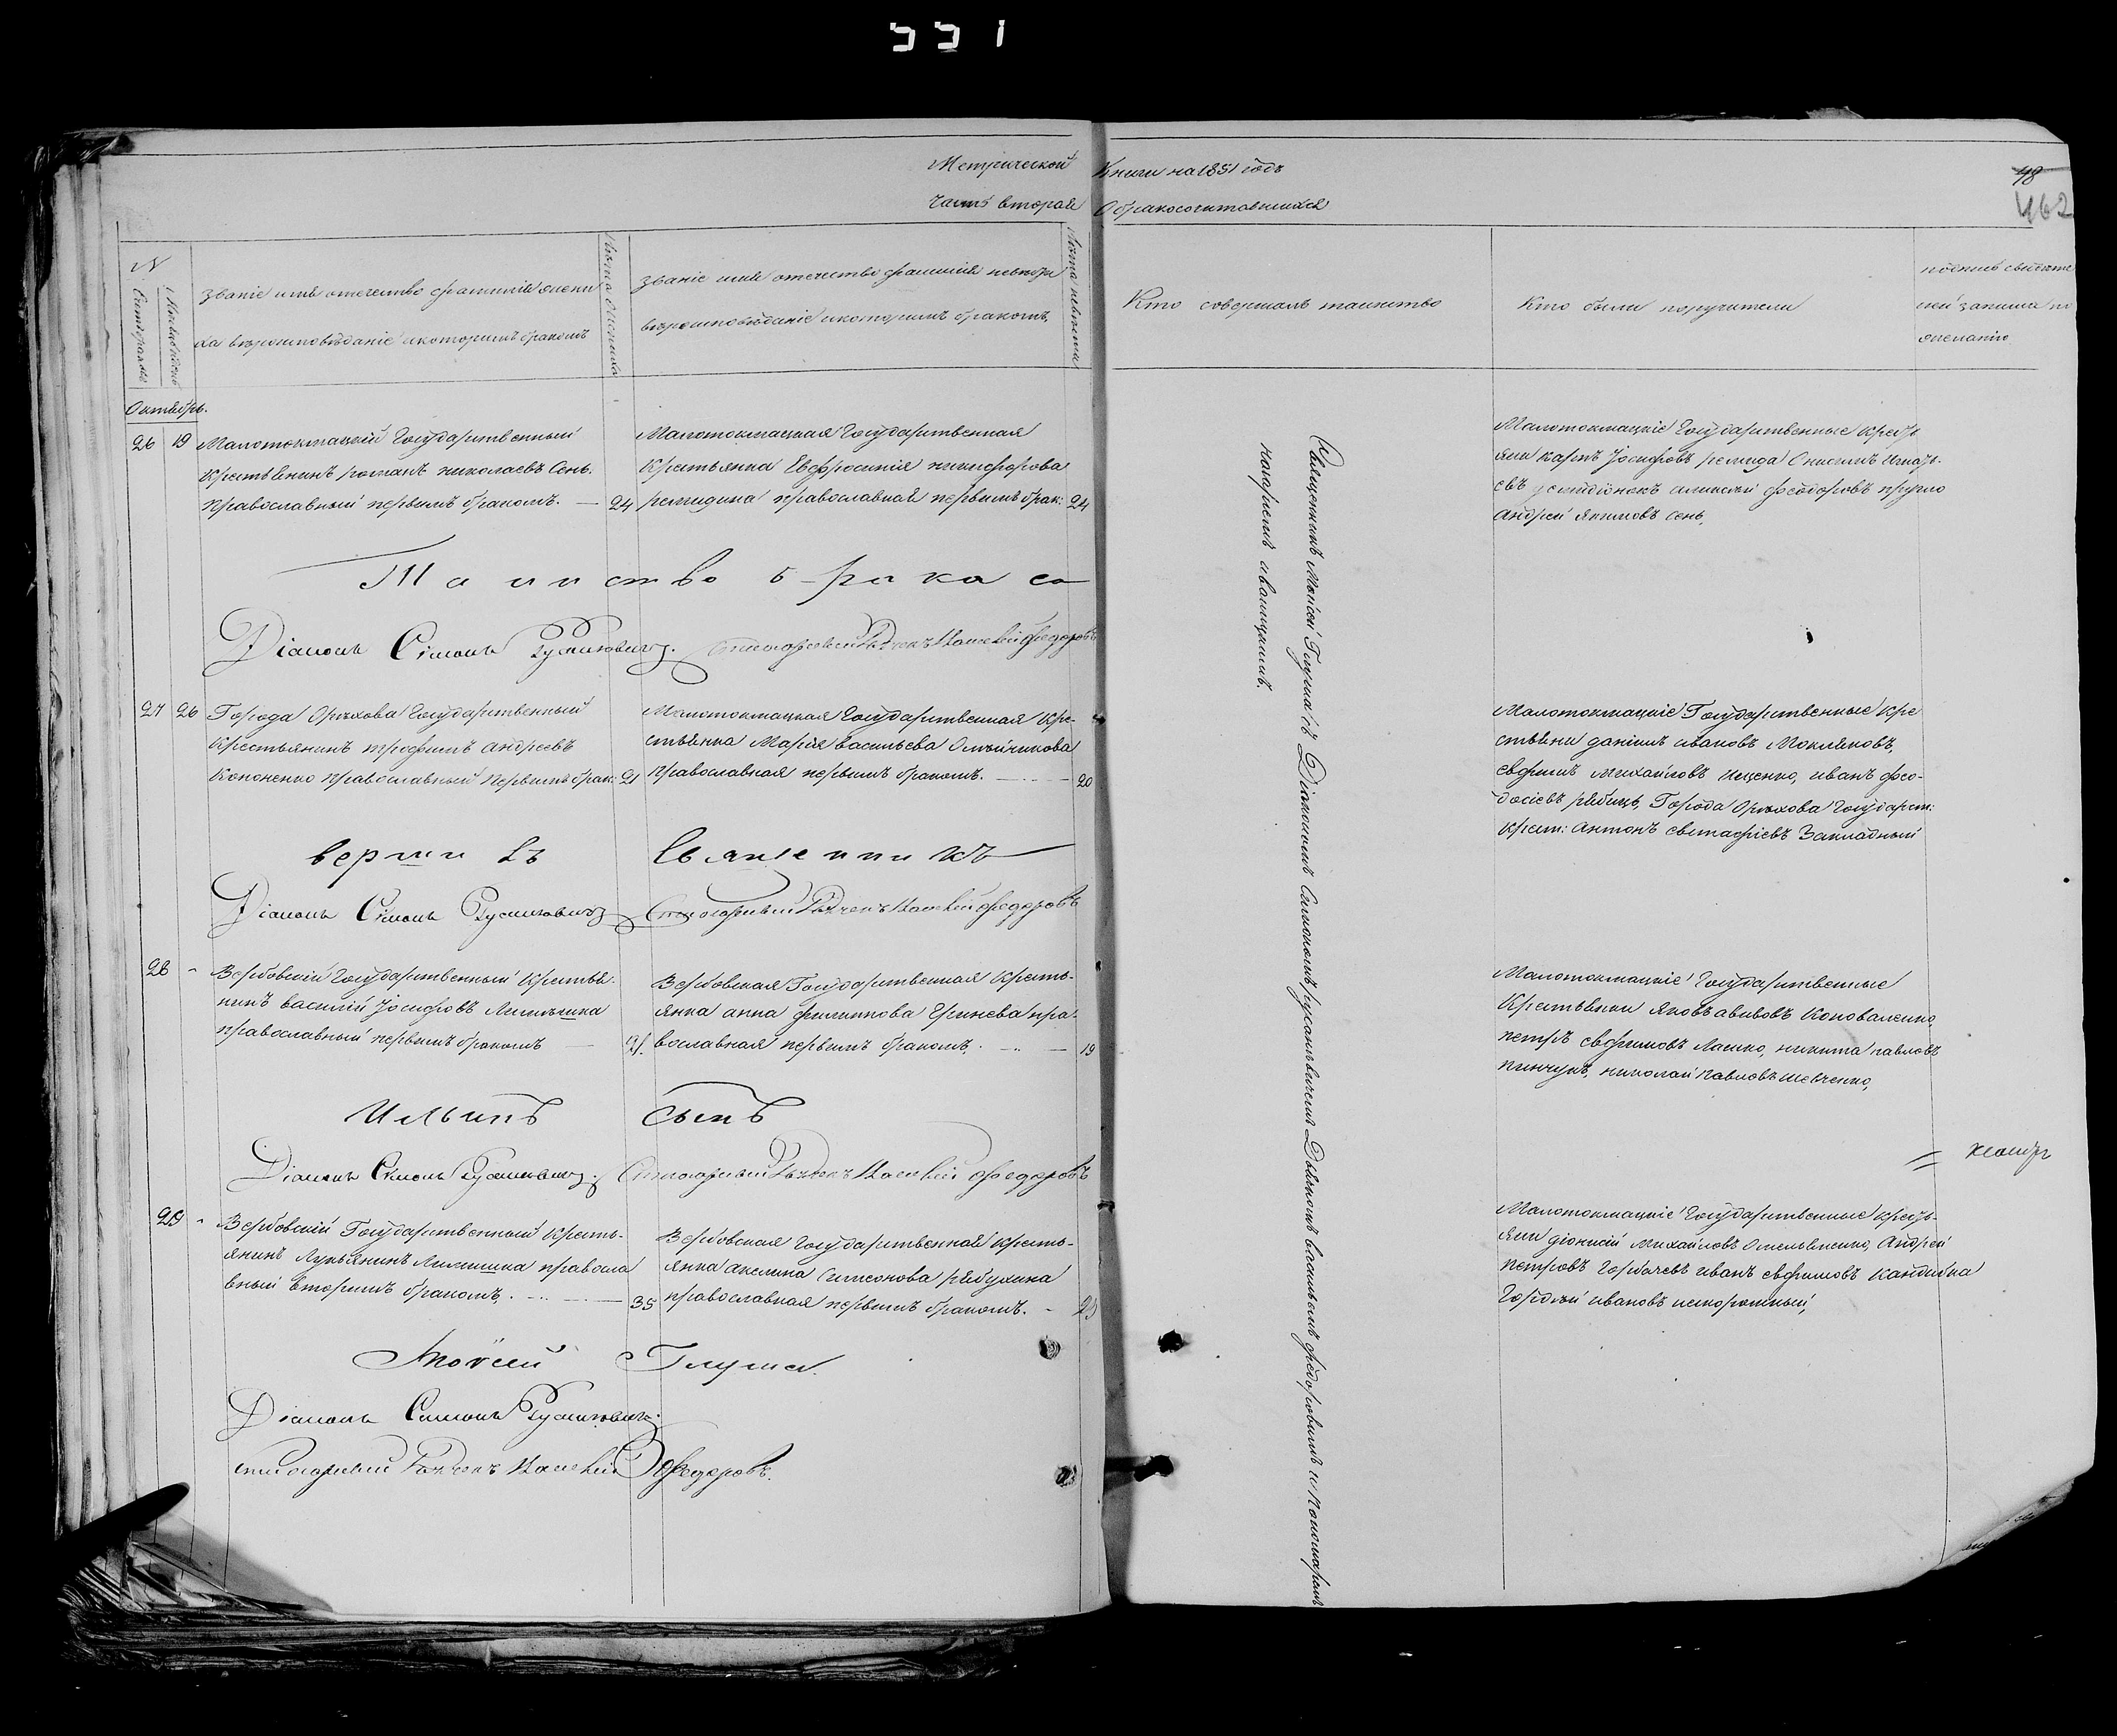 551
Метрической Книги на 1851 годъ
48
462
Часть вторая О бракосочитавшихся
N
Счетъ браковъ
Званіе имя отечество фамилія жени
ха вѣроисповѣданіе и которимъ бракомъ
Лѣта жениха
Званіе имя отечество фамилія невѣсти
вѣроисповѣданіе и которимъ бракомъ,
Лѣта невѣсти
Кто совершалъ таинство
Кто были поручители
подпись свидѣте
лей записи по
желанію
Октябрь.
26 19 Малотокмацкій Государственный
Крестьянинъ романъ николаевъ Сень.
Православный первымъ бракомъ. — 24
Малотокмацкая Государственная
Крестьянка Евфросинія никифорова
ремидина православная первымъ брак: 24
Малотокмацкіе Государственные кресть
яни карпъ Іосифовъ ремида Онисимъ Игнать
евъ демидіонекъ алексѣй феодоровъ кругло
Андрей якимовъ сень,
Таинство брака со
Діаконъ Симонъ Русиновичъ. Стихарный Дячекъ Василій федоровъ
27 26 Города Орѣхова Государственный
Крестьянинъ трофимъ андреевъ
Кононенко православный Первымъ брак: 21
Малотокмацкая Государственная Кре-
стьянка Марія васильева Олѣйникова
православная первымъ бракомъ. — 20
Малотокмацкіе Государственные Кре
стьяни даніилъ ивановъ Мокляковъ,
ефимъ михайловъ ищенко, иванъ фео-
досіевъ рябицъ, Города Орѣхова Государст:
Крест: антонъ евстафіевъ Закладный
вершилъ Священникъ
Діаконъ Симонъ Русиновичъ Стихарный Дячекъ Василій федоровъ
28 - Вербовскій Государственный Крестья
нинъ василій Іосифовъ Лимешка
православный первымъ бракомъ — 21.
Вербовская Государственная Кресть-
янка анна филиппова Гринева пра-
вославная первымъ бракомъ. — 19
Малотокмацкіе Государственные
Крестьяни яковъ авивовъ Коноваленко,
петръ ефимовъ Лашко, никита павловъ
пинчукъ, николай павловъ шевченко,
Ильинъ сынъ
Діаконъ Симонъ Русиновичъ. Стихарный Дячекъ Василій федоровъ
29 - Вербовскій Государственный Кресть-
янинъ Лукьянинъ Лимешка правосла
вный вторимъ бракомъ. — 35
Вербовская Государственная Кресть-
янка акелина Симеонова рябухина
православная первымъ бракомъ. -
Малотокмацкіе Государственные кресть-
яни діонисій михайловъ Омельяненко, Андрей
петровъ Горбачевъ иванъ ефимовъ кандибка
Гордѣй ивановъ нескоромный,
Моисей Глушка.
Діаконъ Симонъ Русиновичъ.
стихарный Дячекъ Василій Федоровъ.
Священникъ Моисей Глушка съ Діакономъ Симономъ русиновичемъ Дьячкомъ василіемъ федоровимъ и пономаремъ